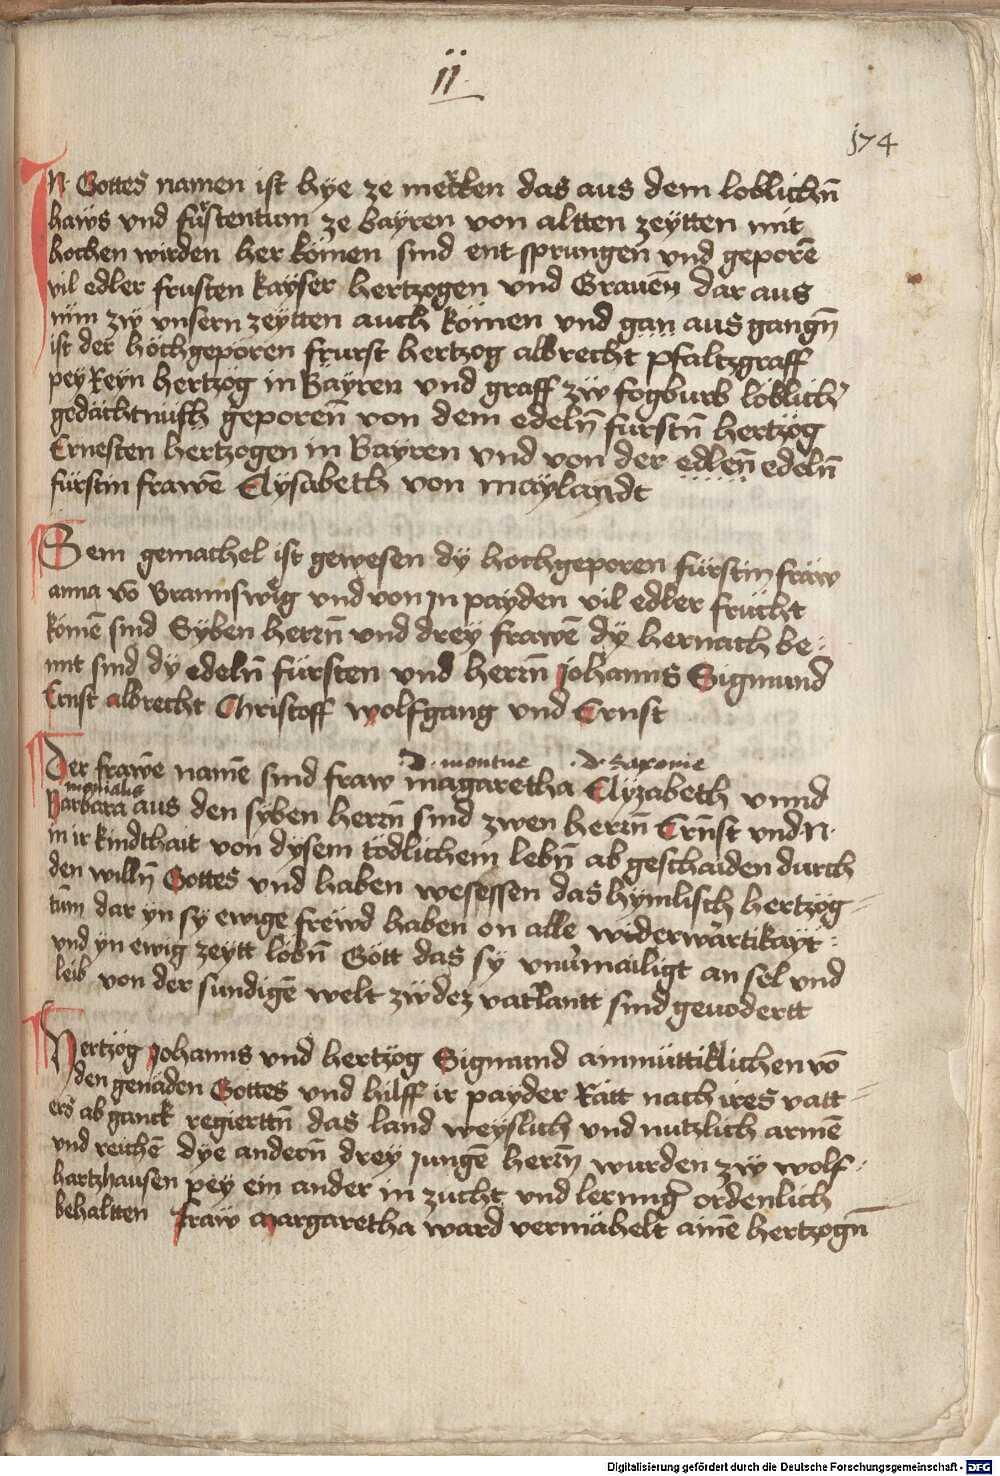 ii
174
IN Gottes namen ist hye ze merken das aus dem loblichn̄
haẅs vnd fürstentum ze bayren von altten zeytten mit
hochen wirden her kömen sind ent sprungen vnd geporē
vil edler frusten kayser hertzogen vnd Grauen̄ dar aus
nün zw̎ vnsern zeytten auch kömen vnd gan aus gangn̄
ist der höchgeporen frurst hertzog albrecht pfaltzgraff
pey Reyn hertzog in Bäyren vnd graff zw̎ fogburb löblich
gedächtnush geporen̄ von dem edeln̄ fürstn̄ hertzög
Ernesten hertzogen in Bayren vnd von der edlen̄ edeln̄
fürstin frawē Elysabeth von maylandt
Sem gemachel ist gewesen dy hochgeporen fürstin fraw
anna vō Braunswig vnd von jn payden vil edler frücht
kömē sind Syben herrn̄ vnd drey frawē dy hernach be :
nnt sind dy edeln̄ fürsten vnd herrn̄ Johanns Sigmund
Ernst albrecht Christoff wolfgang vnd Ernst
D. montue D. Saxonie
Der frawē namē sind fraw magaretha Elyzabeth vnnd
monialis
Barbara aus den syben herrn̄ sind zwen herrn̄ Ernst vnd N.
in ir kindthait von dysem todlichem lebn̄ ab geschaiden durch
den willn̄ Gottes vnd haben wesessen das hymlisch hertzög
tūm dar yn sy ewige frewd haben on alle widerwärtikayt :
vnd yn ewig zeytt lobn̄ Gott das sy vnūmailigt an sel vnd
leib von der sundigē welt zẅ dez vatlantt sind geuodertt
Hertzög Johanns vnd hertzög Sigmund ainmüttiklichen vō
den genäden Gottes vnd hilff ir payder Rätt nach ires vatt
ers ab ganck regierttn̄ das land weyslich vnd nutzlich armē
vnd reichē dye andern̄ drey jungē herrn̄ wurden zẅ wolf
hartzhausen pey ein ander in zücht vnd lernung ordenlich
behaltten fraw margaretha ward vermähelt ainē hertzogn̄
Digitalisierung gefördert durch die Deutsche Forschungsgemeinschaft - DFG